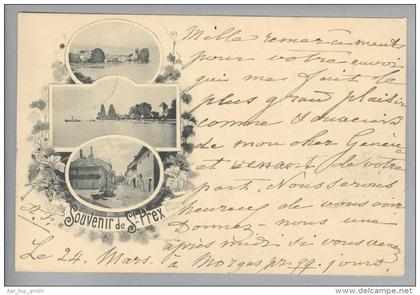 Mille remerciments
pour votre envoi
qui me fait le
plus grand plaisir
comme souvenirs
de mon cher Genève
et venant de votre
part. Nous serons
heureux de vous voir
Donnez-nous une
après midi si vous venez
à Morges pr. qq. jours.
Souvenir de St-Prex
Le 24. Mars.
© app_gmbh
delcampe.net